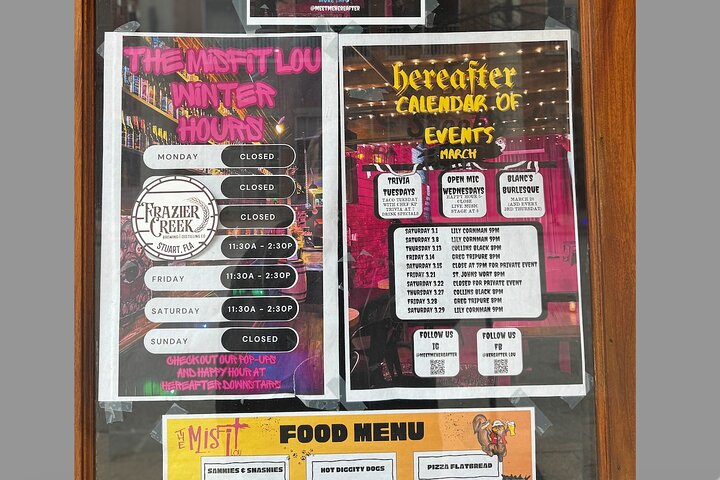 @MEETMEHEREAFTER
THE MISFIT LOU
WINTER
HOURS
MONDAY CLOSED
CLOSED
CLOSED
11:30A - 2:30P
FRIDAY 11:30A - 2:30P
SATURDAY 11:30A - 2:30P
SUNDAY CLOSED
FRAZIER
CREEK
BREWING & DISTILLING CO
STUART, FLA
CHECK OUT OUR POP-UPS
AND HAPPY HOUR AT
HEREAFTER DOWNSTAIRS
hereafter
CALENDAR OF
EVENTS
MARCH
TRIVIA
TUESDAYS
TACO TUESDAY
WITH CHEF KP
TRIVIA AT 7
DRINK SPECIALS
OPEN MIC
WEDNESDAYS
HAPPY HOUR 5-
CLOSE
LIVE MUSIC
STAGE AT 8
BLANC'S
BURLESQUE
MARCH 20
(AND EVERY
3RD THURSDAY)
SATURDAY 3.1 LILY CORNMAN 9PM
SATURDAY 3.8 LILY CORNMAN 9PM
THURSDAY 3.13 COLLINS BLACK 8PM
FRIDAY 3.14 GREG TRIPURE 8PM
SATURDAY 3.15 CLOSE AT 7PM FOR PRIVATE EVENT
FRIDAY 3.21 ST. JOHNS WORT 8PM
SATURDAY 3.22 CLOSED FOR PRIVATE EVENT
THURSDAY 3.27 COLLINS BLACK 8PM
FRIDAY 3.28 GREG TRIPURE 8PM
SATURDAY 3.29 LILY CORNMAN 9PM
FOLLOW US
IG
@MEETMEHEREAFTER
FOLLOW US
FB
@HEREAFTER.LOU
THE MISFIT LOU
FOOD MENU
SAMMIES & SMASHIES
HOT DIGGITY DOGS
PIZZA FLATBREAD